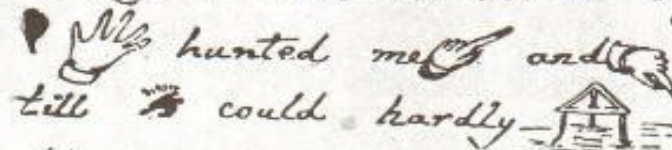 hunted me and
till could hardly